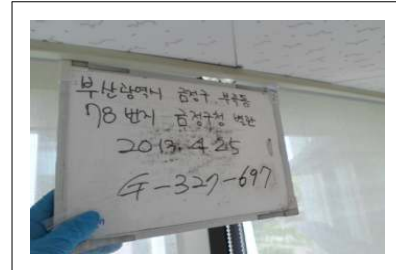 부산광역시 금정구 부곡동
78 번지 금정구청 별관
2013. 4. 25
G-327-697